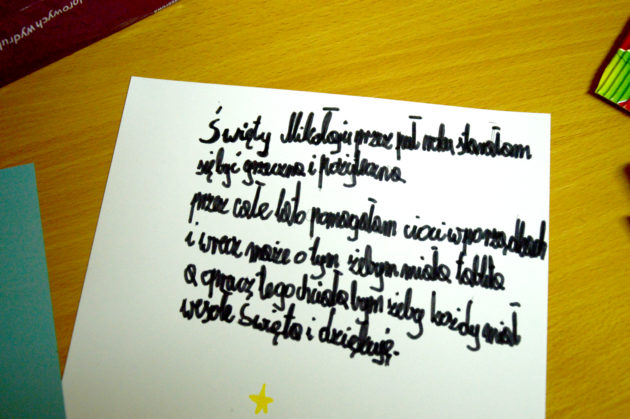 orowych wydruk
Święty Mikołaju przez pół roku starałam
się być grzeczna i pożyteczna
przez całe lato pomagałam cioci w porządkach
i wręcz marzę o tym żebym miała tablet
a oprócz tego chciałabym żeby każdy miał
wesołe Święta i dziękuję.